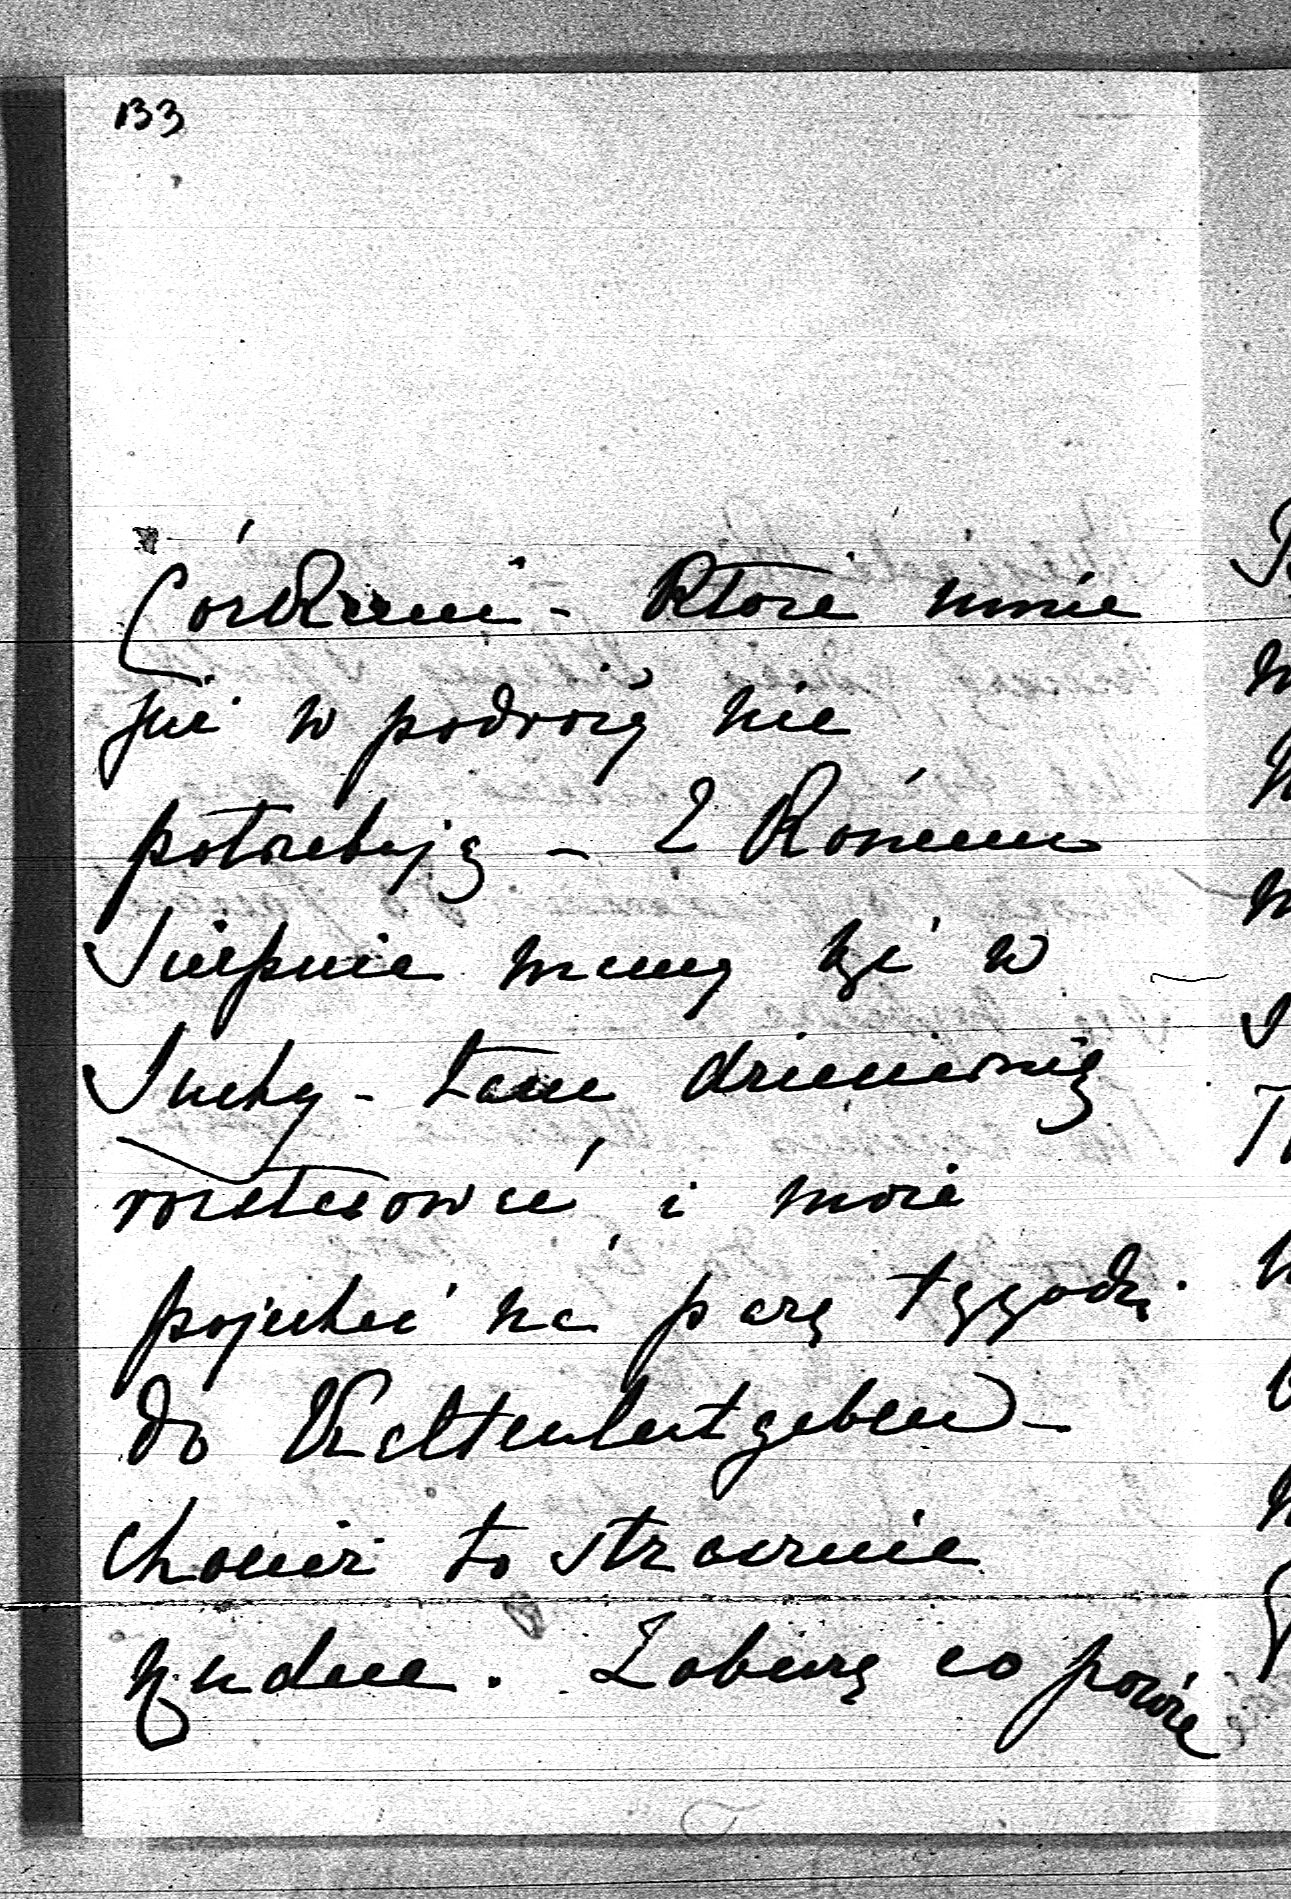 133
Córkami - które mnie
już w podróży nie
potrzebują - Z końcem
Sierpnia mamy być w
Suchy - tam
i może
pojechać na parę tygodni
do Kaltenleutgeben -
chociaż to strasznie
nudne. Zobaczę co powie